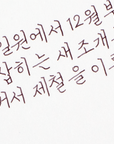 일원에서 12월
잡히는 새 조개
서 제철을 이